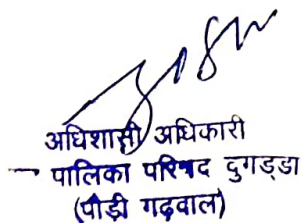 अधिशासी अधिकारी
पालिका परिषद दुगड्डा
(पौड़ी गढ़वाल)